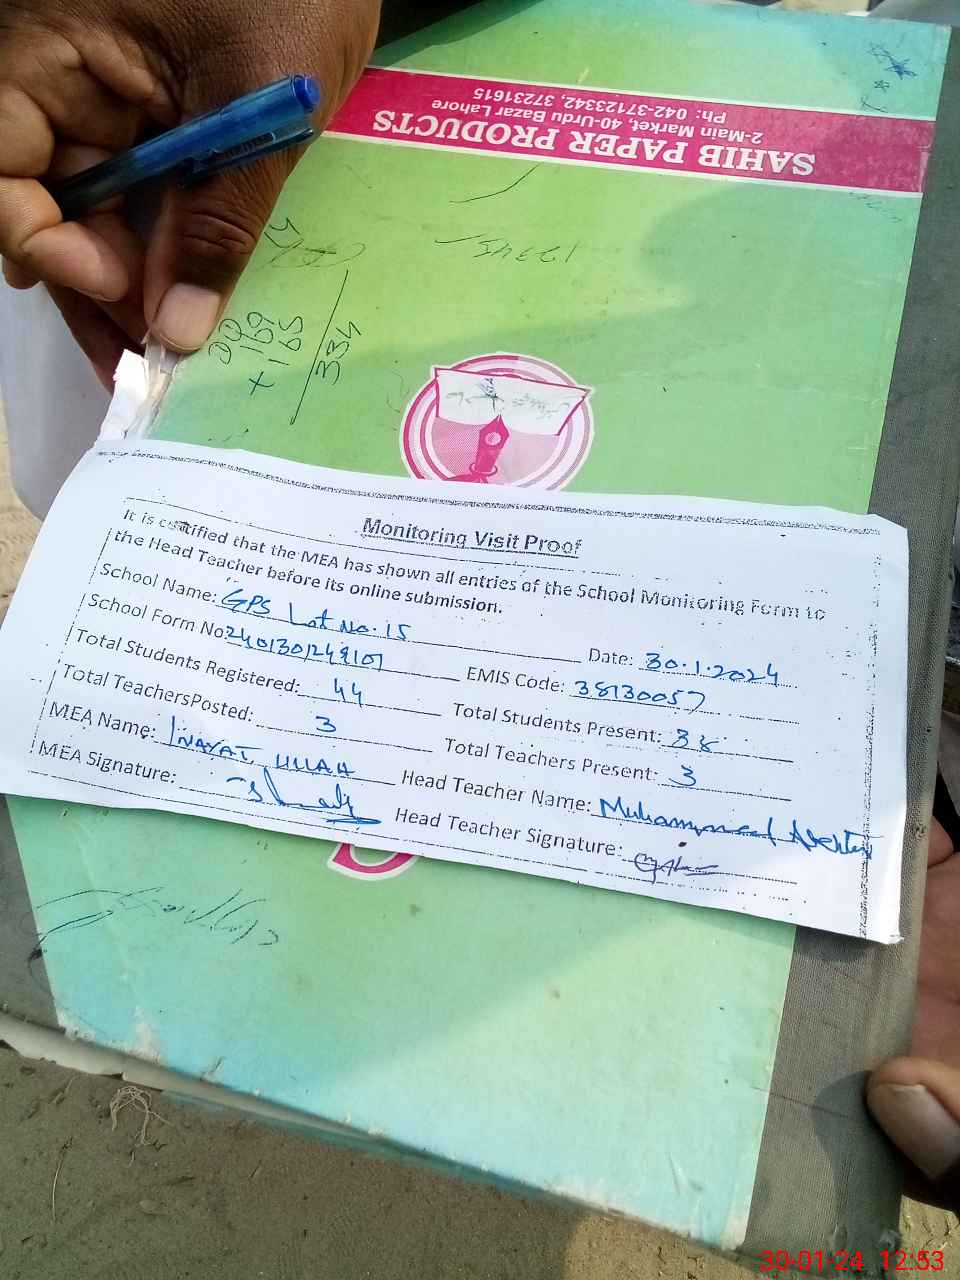 SAHIB PAPER PRODUCTS
2-Main Market, 40-Urdu Bazar Lahore
Ph: 042-37123342, 37231615
12345
169
+ 165
334
Monitoring Visit Proof
It is certified that the MEA has shown all entries of the School Monitoring Form to
the Head Teacher before its online submission.
School Name: GPS Lot No. 15 Date: 30.1.2024
School Form No: 2401301249101 EMIS Code: 38130057
Total Students Registered: 44 Total Students Present: 38
Total TeachersPosted: 3 Total Teachers Present: 3
MEA Name: INAYAT ULLAH Head Teacher Name: Muhammad Akhtar
MEA Signature: Head Teacher Signature:
30-01-24 12:53